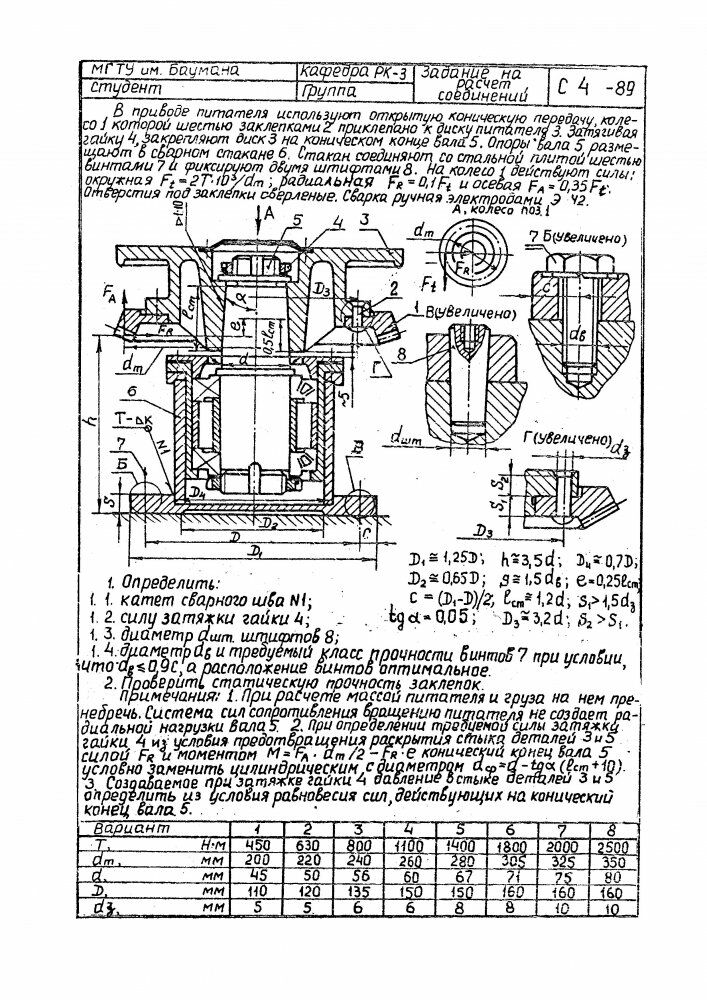 МГТУ им. Баумана
студент
кафедра РК-3
Группа
Задание на расчет соединений
С 4 -89
В приводе питателя используют открытую коническую передачу, коле-
со 1 которой шестью заклепками 2 приклепано к диску питателя 3. Затягивая
гайку 4, закрепляют диск 3 на коническом конце вала 5. Опоры вала 5 разме-
щают в сварном стакане 6. Стакан соединяют со стальной плитой шестью
винтами 7 и фиксируют двумя штифтами 8. На колесо 1 действуют силы:
окружная Ft=2T·10³/dm; радиальная FR=0,1Ft и осевая FA=0,35Ft.
Отверстия под заклепки сверленые. Сварка ручная электродами Э 42.
А, колесо поз.1
А
5
4
3
D3
2
1
FA
lст
α
e
0,5lст
FR
dm
d
Г
~5
h
6
Т-⊿К
7
N1
Б
В
S
D4
D2
D
D1
C
dm
FR
Ft
7
Б(увеличено)
C
dв
В(увеличено)
8
dшт
Г(увеличено)
dз
S2
S1
D3
D1≅1,25D; h≅3,5d; D4≅0,7D;
D2≅0,65D; g≅1,5dв; e=0,25lст
C=(D1-D)/2; lст≅1,2d; S1>1,5dз
tgα=0,05; D3≅3,2d; S2>S1.
1. Определить:
1. 1. катет сварного шва N1;
1. 2. силу затяжки гайки 4;
1. 3. диаметр dшт. штифтов 8;
1. 4. диаметр dв и требуемый класс прочности винтов 7 при условии,
что dв≤0,9C, а расположение винтов оптимальное.
2. Проверить статическую прочность заклепок.
Примечания: 1. При расчете массой питателя и груза на нем пре-
небречь. Система сил сопротивления вращению питателя не создает ра-
диальной нагрузки вала 5. 2. При определении требуемой силы затяжки
гайки 4 из условия предотвращения раскрытия стыка деталей 3 и 5
силой FR и моментом M=FA·dm/2-FR·e конический конец вала 5
условно заменить цилиндрическим с диаметром dср=d-tgα(lст+10).
3. Создаваемое при затяжке гайки 4 давление в стыке деталей 3 и 5
определить из условия равновесия сил, действующих на конический
конец вала 5.
Вариант 1 2 3 4 5 6 7 8
Т, Н·м 450 630 800 1100 1400 1800 2000 2500
dm, мм 200 220 240 260 280 305 325 350
d, мм 45 50 56 60 67 71 75 80
D, мм 110 120 135 150 150 160 160 160
dз, мм 5 5 6 6 8 8 10 10